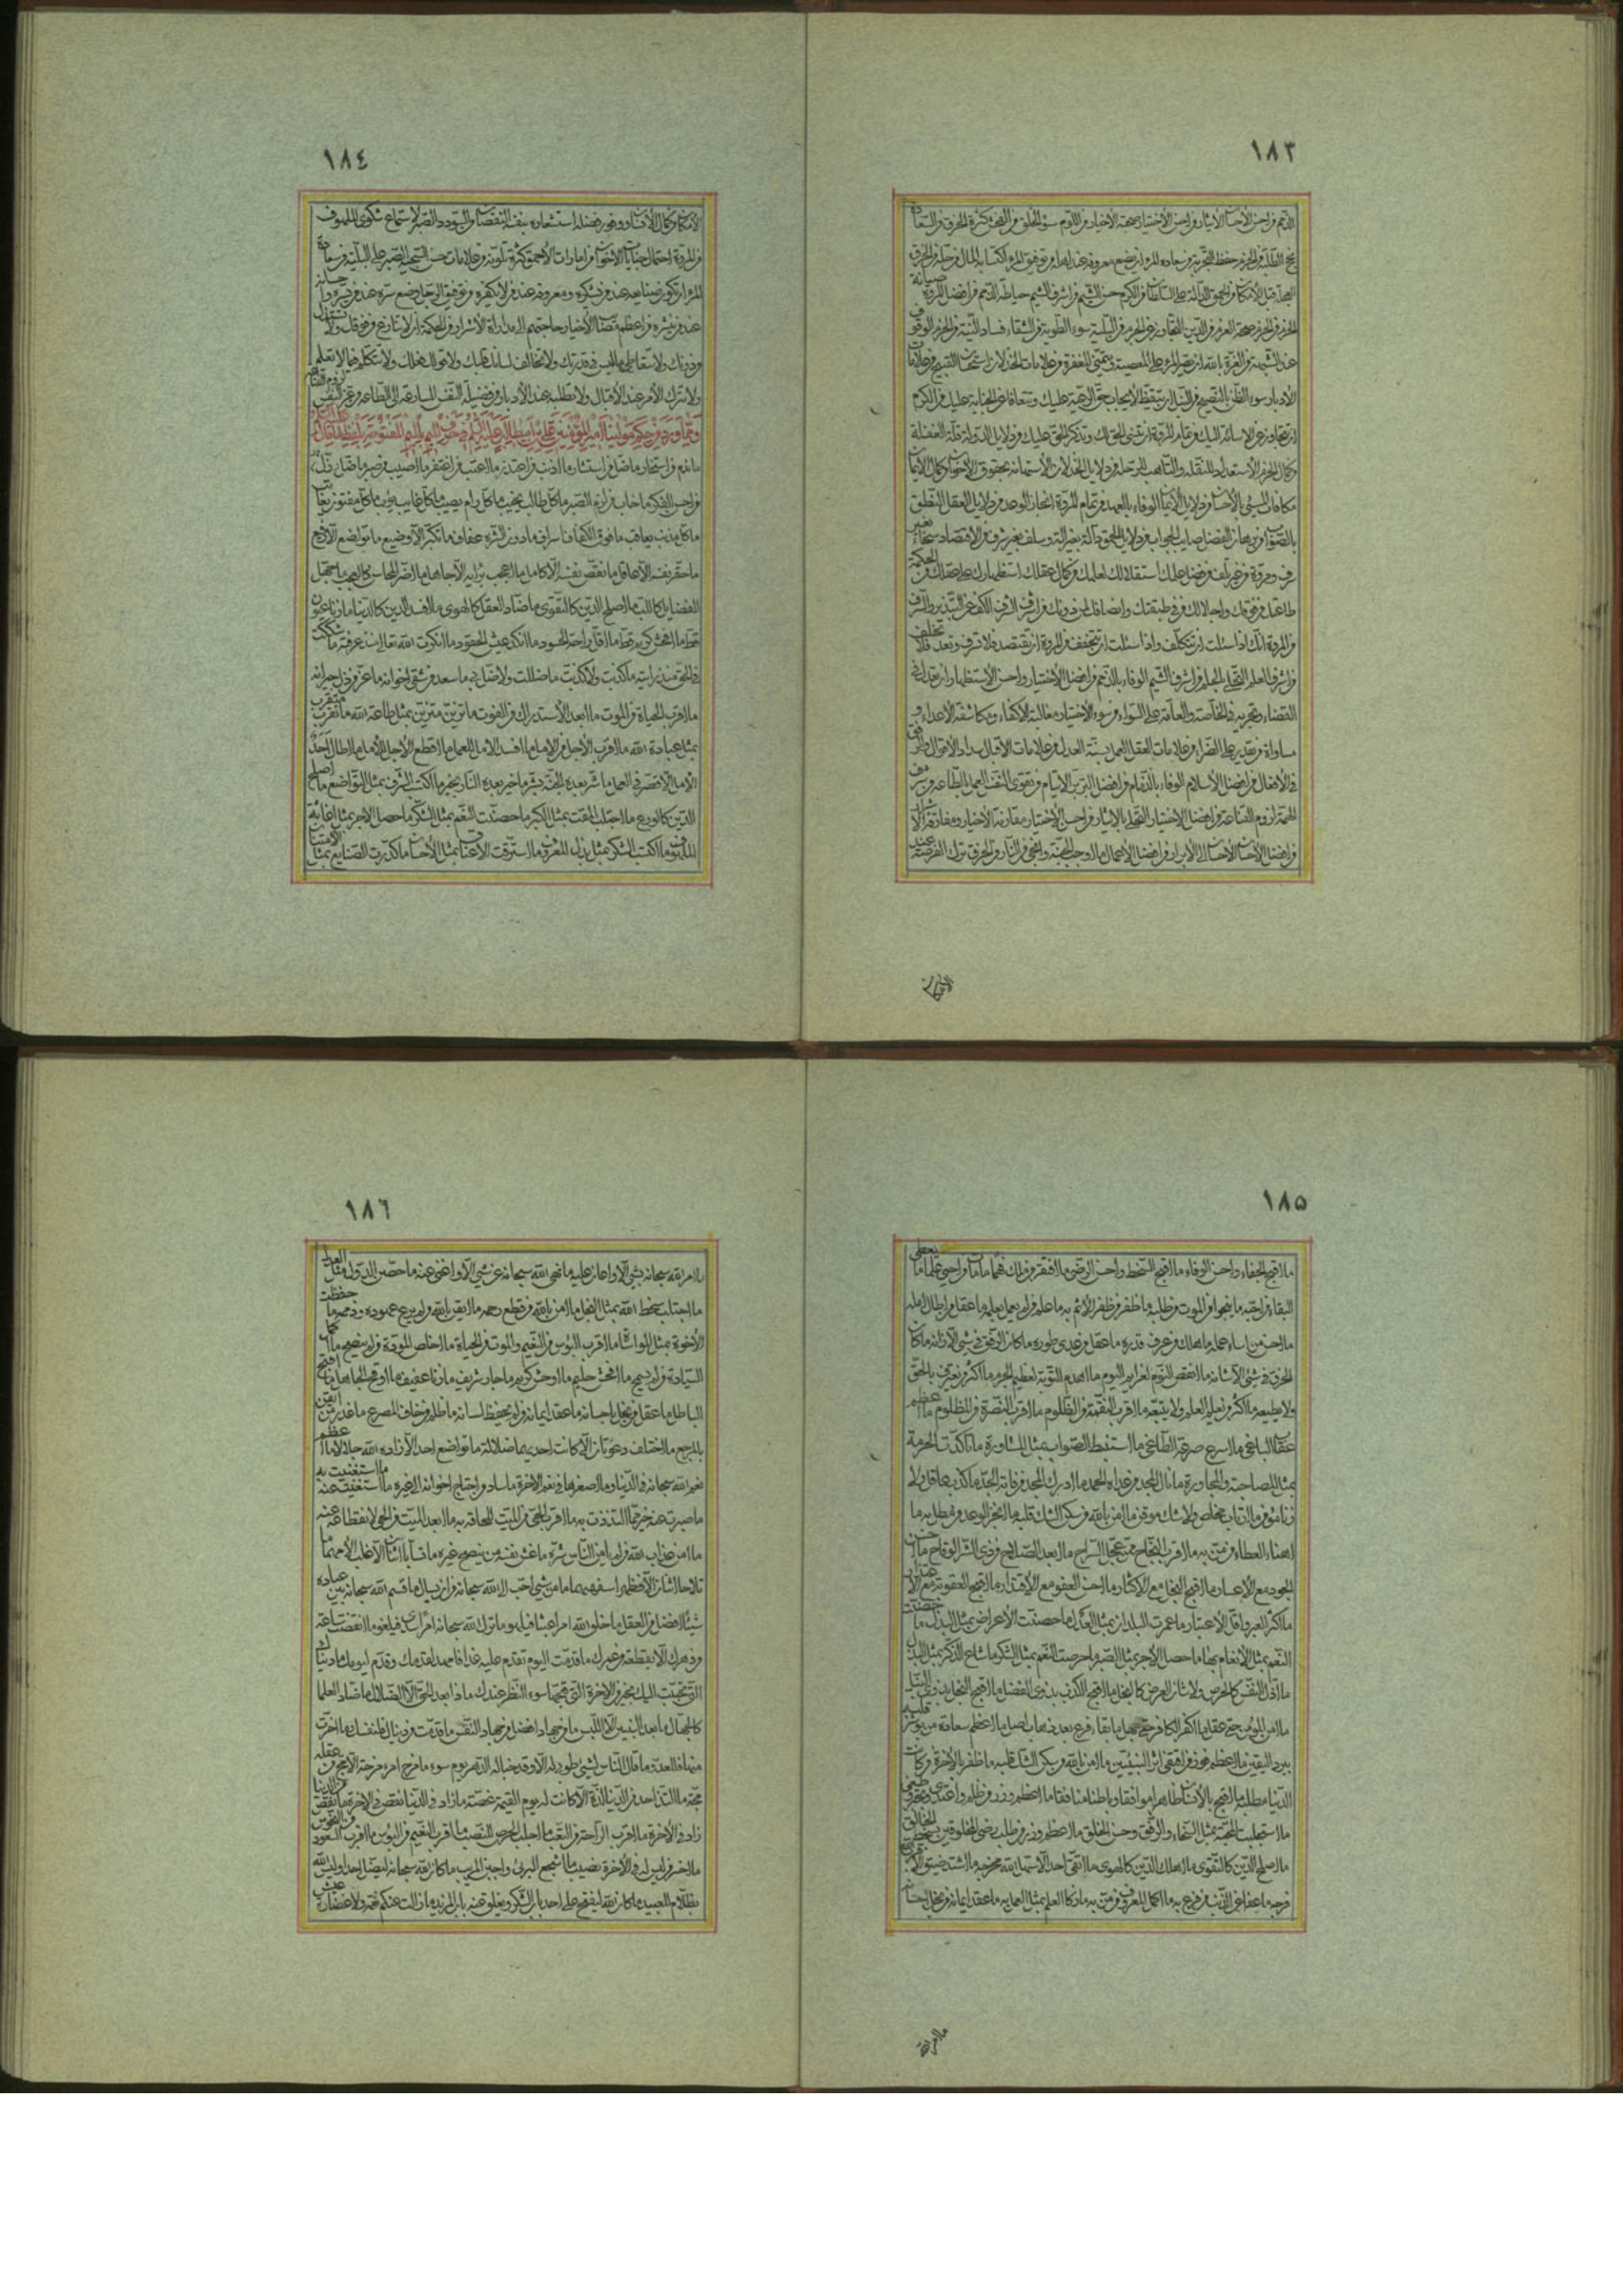 ١٨٣
الذمم من احسن الاحسان الايثار من احسن الاختيار صحبة الاخيار من اللؤم سوء الخلق من الفحش كثرة الخرق من السعادة
نجح الطلبة من الحزم حفظ التجربة من سعادة المرء ان يضع معروفه عند اهله من توفيق المرء اكتسابه المال من حله من الخرق
العجلة قبل الامكان من الحمق الدالة على السلطان من الكرم حسن الشيم من اشرف الشيم حياطة الذمم من افضل المروة صيانة
الحزم من الحزم صحة العزم من الدين التجاوز عن الجرم من البلية سوء الطوية من الشقاء فساد النية من الحزم الوقوف
عند الشبهة من الغرة بالله ان يصر المرء على المعصية ويتمنى المغفرة من علامات الخذلان استحسان القبيح من علامات
الادبار سوء الظن بالنصيح من النبل ان يتيقظ لايجاب حق الرعية عليك وتتغابى عن الجناية عليك من الكرم
ان تتجاوز عن الاساءة اليك من تمام المروة ان تنسى الحق لك وتذكر الحق عليك من دلايل الدولة قلة الغفلة
من كمال الحزم الاستعداد للنقلة والتاهب للرحلة من دلايل الخذلان الاستهانة بحقوق الاخوان من كمال الايمان
مكافات المسئ بالاحسان من دلايل الايمان الوفاء بالعهد من تمام المروة انجاز الوعد من دلايل العقل النطق
بالصواب من برهان الفضل صايب الجواب من دلايل الحمق دالة بغير آلة وصلف بغير شرف من الاقتصاد سخاء بغير
سرف ومروة من غير تلف من فضل علمك استقلالك لعلمك من كمال عقلك استظهارك على عقلك من الحكمة
طاعتك لمن فوقك واجلالك من في طبقتك وانصافك لمن دونك من اشرف الشرف الكف عن التبذير والسرف
من المروة انك اذا سئلت ان تتكلف واذا سألت ان تخفف من المروة ان تقتصد فلا تسرف وتعد فلا تخلف
من اشرف العلم التحلى بالحلم من اشرف الشيم الوفاء بالذمم من افضل الاختيار واحسن الاستظهار ان تعدل فى
القضاء وتجريه فى الخاصة والعامة على السواء من سوء الاختيار مغالبة الاكفاء ومكاشفة الاعداء و
مناواة من يقدر على الضراء من علامات العقل العمل بسنة العدل من علامات الاقبال سداد الاقوال والرفق
فى الافعال من افضل الاسلام الوفاء بالذمام من افضل البر بر الايتام من تقوى النفس العمل بالطاعة من شرف
الهمة لزوم القناعة من افضل الاختيار التحلى بالايثار من احسن الاختيار مقارنة الاخيار ومفارقة الاشرار
من افضل الاحسان الاحسان الى الابرار من افضل الاعمال ما اوجب الجنة وانجى من النار من الخرق ترك الفرصة عند
الامكان
١٨٤
الامكان من كمال الانسان ووفور فضله استشعاره بنفسه النقصان من السودد الصبر لاستماع شكوى الملهوف
من المروة احتمال جنايات الاخوان من امارات الاحمق كثرة تلونه من علامات حسن السجية الصبر على البلية من سعادة
المرء ان تكون صنايعه عند من يشكره ومعروفه عند من لا يكفره من توفيق الرجل وضع سره عند من يستره واحسانه
عند من ينشره من اعظم مصائب الاخيار حاجتهم الى مداراة الاشرار من الحكمة ان لا تنازع من فوقك ولا تستذل
من دونك ولا تتعاطى ما ليس فى قدرتك ولا تخالف لسانك قلبك ولا قولك فعلك ولا تتكلم فيما لا تعلم
ولا تترك الامر عند الاقبال ولا تطلبه عند الادبار من فضيلة النفس المسارعة الى الطاعة من عز النفس لزوم القناعة
ومما ورد من حكم مولينا امير المؤمنين على بن ابى طالب عليه السلم فى حرف الميم بالميم المفتوحة بلفظ ما قال
ما ندم من استخار ما ضل من استشار ما اذنب من اعتذر ما اعتب من اغتفر ما اصيب من صبر ما ضل من دل
من احسن الفكر ما خاب من لزم الصبر ما كل طالب يخيب ما كل رام يصيب ما كل غايب يؤب ما كل مفتون يعاتب
ما كل مذنب يعاقب ما فوق الكفاف اسراف ما دون الشره عفاف ما تكبر الا وضيع ما تواضع الا رفيع
ما حقر نفسه الا عاقل ما نقص نفسه الا كامل ما اعجب برايه الا جاهل ما اضر المحاسن كالعجب ما جمل
الفضايل كاللب ما اصلح الدين كالتقوى ما ضاد العقل كالهوى ما افسد الدين كالدنيا ما زنا غيور
قط ما افحش كريم قط ما اقل راحة الحسود ما انكد عيش الحقود ما انكرت الله تعالى منذ عرفته ما شككت
فى الحق منذ رايته ما كذبت ولا كذبت ما ضللت ولا ضل بى ما سعد من شقى اخوانه ما عز من ذل جيرانه
ما اقرب الحياة من الموت ما ابعد الاستدراك من الفوت ما تزين متزين بمثل طاعة الله ما تقرب متقرب
بمثل عبادة الله ما اقرب الاجل من الامل ما افسد الامل للعمل ما اقطع الاجل للامل ما اطال احد
الامل الا قصر فى العمل ما شر بعده الجنة بشر ما خير بعده النار بخير ما اكتسب الشرف بمثل التواضع ما اصلح
الدين كالورع ما اجتلب المقت بمثل الكبر ما حصنت النعم بمثل الشكر ما حصل الاجر بمثل اغاثة
الملهوف ما اكتسب الشكر بمثل بذل المعروف ما استرقت الاعناق بمثل الاحسان ما كدرت الصنايع بمثل الامتنان
١٨٥
ما اقبح الجفاء واحسن الوفاء ما اقبح السخط واحسن الرضى ما افتقر من ملك فهما ما مات من احيى علما ما يعطى
البقاء من احبه ما ينجو من الموت من طلبه ما ظفر من ظفر الاثم به ما علم من لم يعمل بعلمه ما عقل من اطال امله
ما احسن من اساء عمله ما هلك من عرف قدره ما عقل من عدى طوره ما كان الرفق فى شئ الا زانه ما كان
الخرق فى شئ الا شانه ما انقض النوم لعزايم اليوم ما اهدم التوبة لعظيم الجرم ما اكثر من يعترف بالحق
ولا يطيعه ما اكثر من تعلم العلم ولا يتبعه ما اقرب النقمة من الظلوم ما اقرب النصرة من المظلوم ما اعظم
عقاب الباغى ما اسرع صرعة الطاغى ما استنبط الصواب بمثل المشاورة ما تاكدت الحرمة
بمثل المصاحبة والمجاورة ما نال المجد من عداه الحمد ما ادرك المجد من فاته الجد ما كذب عاقل ولا
زنا مؤمن ما ارتاب مخلص ولا شك موقن ما امن بالله من سكن الشك قلبه ما انجز الوعد من مطل به ما
اهنأ العطاء من من به ما اقرب النجاح ممن عجل السراح ما ابعد الصلاح من ذى الشر الوقاح ما احسن
الجود مع الاعسار ما اقبح البخل مع الاكثار ما احسن العفو مع الاقتدار ما اقبح العقوبة مع الاعتذار
ما اكثر العبر واقل الاعتبار ما عمرت البلدان بمثل العدل ما حصنت الاعراض بمثل البذل ما حصنت
النعم بمثل الانعام بها ما حصل الاجر بمثل الصبر ما حرست النعم بمثل الشكر ما شاع الذكر بمثل البذل
ما اذل النفس كالحرص ولا شان العرض كالبخل ما اقبح الكذب بذوى الفضل ما اقبح البخل بذوى النبل
ما امن المؤمن حتى عقل ما كفر الكافر حتى جهل ما بقاء فرع بعد ذهاب اصل ما اعظم سعادة من بوشر قلبه
ببرد اليقين ما اعظم فوز من اقتفى اثر النبيين ما امن بالله من سكن الشك قلبه ما ظفر بالاخرة من كانت
الدنيا مطلبه ما اقبح بالانسان ظاهرا موافقا وباطنا منافقا ما اعظم وزر من ظلم واعتدى وتجبر وطغى
ما استجلبت المحبة بمثل السخاء والرفق وحسن الخلق ما اعظم وزر من طلب رضى المخلوقين بسخط الخالق
ما اصلح الدين كالتقوى ما اهلك الدين كالهوى ما اتقى احد الا سهل الله مخرجه ما اشتد ضيق الا قرب الله
فرجه ما عفا عن الذنب من قرع به ما اكمل المعروف من من به ما زكا العلم بمثل العمل به ما عقد ايمانه من بخل باحسانه
ما امر الله
١٨٦
ما امر الله سبحانه بشئ الا واعان عليه ما نهى الله سبحانه عن شئ الا واغنى عنه ما حصن الدول مثل العدل
ما اجتلب سخط الله بمثل البخل ما امن بالله من قطع رحمه ما ايقن بالله من لم يرع عهوده وذممه ما حفظت
الاخوة بمثل المواساة ما اقرب البؤس من النعيم والموت من الحياة ما اخلص المودة من لم ينصح ما اكمل
السيادة من لم يسمح ما افحش حليم ما اوحش كريم ما جار شريف ما زنا عفيف ما اوقح الجاهل ما اقبح
الباطل ما عقل من بخل باحسانه ما عقد ايمانه من لم يحفظ لسانه ما ظلم من خاف المصرع ما غدر من ايقن
بالمرجع ما اختلف دعوتان الا كانت احديهما ضلالة ما تواضع احد الا زاده الله جلالا ما اعظم
نعم الله سبحانه فى الدنيا وما اصغرها فى نعم الاخرة ما ساد من احتاج اخوانه الى غيره ما استغنيت عنه خير مما استغنيت به
ما صبرت عنه خير مما التذذت به ما اقرب الحى من الميت للحاقه به ما ابعد الميت من الحى لانقطاعه عنه
ما امن عذاب الله من لم يامن الناس شره ما غش نفسه من ينصح غيره ما تساب اثنان الا غلب الامهما ما
تلاحا اثنان الا فظهر اسفههما ما من شئ احب الى الله سبحانه من ان يسال ما قسم الله سبحانه بين عباده
شيئا افضل من العقل ما خلق الله امرا عبثا فيلهو ما ترك الله سبحانه امرا سدى فيلغو ما انقضت ساعة
من دهرك الا بقطعة من عمرك ما قدمت اليوم تقدم عليه غدا فامهد لقدمك وقدم ليومك ما دنياك
التى تحببت اليك بخير من الاخرة التى قبحها سوء النظر عندك ماذا بعد الحق الا الضلال ما ضاد العلماء
كالجهال ما بعد النبيين الا اللبس ما من جهاد افضل من جهاد النفس ما قدمت من دنياك فلنفسك وما اخرت
منها فللعدو ما قال الناس لشئ طوبى له الا وقد خبا له الدهر يوم سوء ما مزح امرء مزحة الا مج من عقله
مجة ما التذ احد من الدنيا لذة الا كانت له يوم القيمة غصة ما زاد فى الدنيا نقص فى الاخرة ما نقص من الدنيا
زاد فى الاخرة ما اقرب الراحة من التعب ما اجلب الحرص للنصب ما اقرب النعيم من البؤس ما اقرب السعود من النحوس
ما اخسر من ليس له فى الاخرة نصيب ما اشجع البرئ واجبن المريب ما كان الله سبحانه ليضل احدا وليس الله
بظلام للعبيد ما كان الله ليفتح على احد باب الشكر ويغلق عنه باب المزيد ما زالت عنكم نعمة ولا غضارة عيش